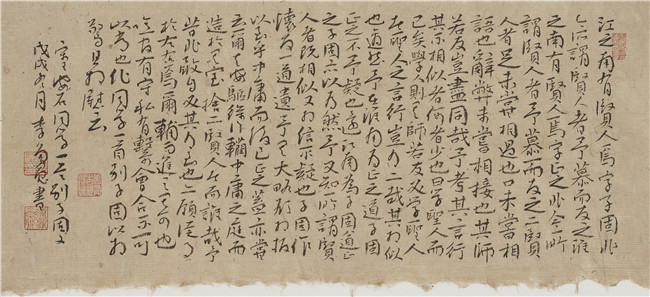 江之南有賢人焉字子固非
今所謂賢人者予慕而友之淮
之南有賢人焉字正之非今所
謂賢人者予慕而友之二賢
人者足未嘗相過也口未嘗相
語也辭幣未嘗相接也其師
若友豈盡同哉予考其言行
其不相似者何其少也曰學聖人而
已矣學聖人則其師若友必學聖人
者聖人之言行豈有二哉其相似
也適然予在淮南為正之道子固
正之不予疑也還江南為子固道正
之子固亦以為然予又知所謂賢
人者既相似又相信不疑也子固作
懷友一首遺予其大略欲相扳
以至乎中庸而後已正之蓋亦嘗
云爾夫安驅徐行轥中庸之庭而
造於其室捨二賢人者而誰哉予
昔非敢自必其有至也亦願從事
於左右焉爾輔而進之其可也
噫官有守私有繫會合不可
以常也作同學一首別子固以相
警且相慰云
宋王安石同學一首別子固文
戊戌九月 李 書